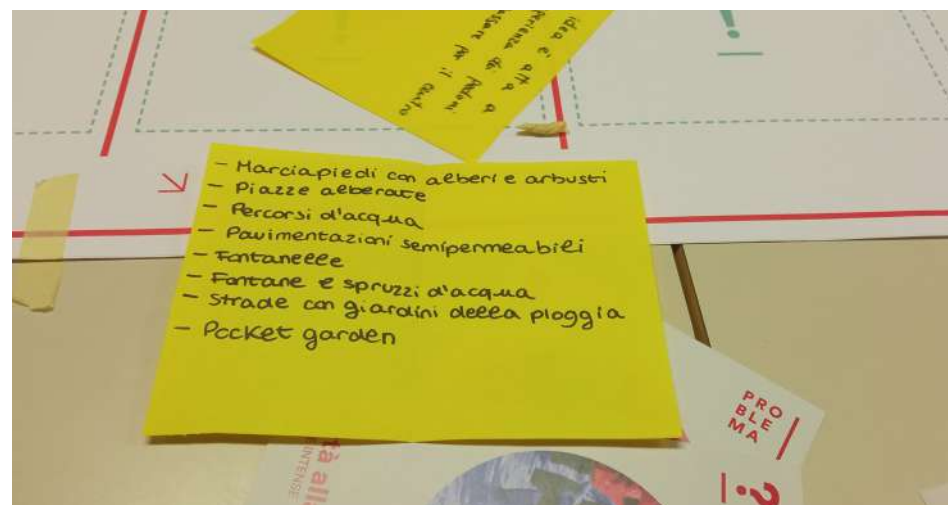 idea è alta a
perienza di pedoni
assare per il centro
!
- Marciapiedi con alberi e arbusti
- Piazze alberate
- Percorsi d'acqua
- Pavimentazioni semipermeabili
- Fontanelle
- Fontane e spruzzi d'acqua
- Strade con giardini della pioggia
- Pocket garden
PRO
BLE
MA
?
tà all
INTENSE